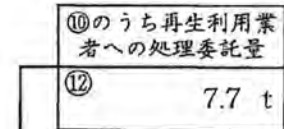 ⑩のうち再生利用業
者への処理委託量
⑫
7.7 t